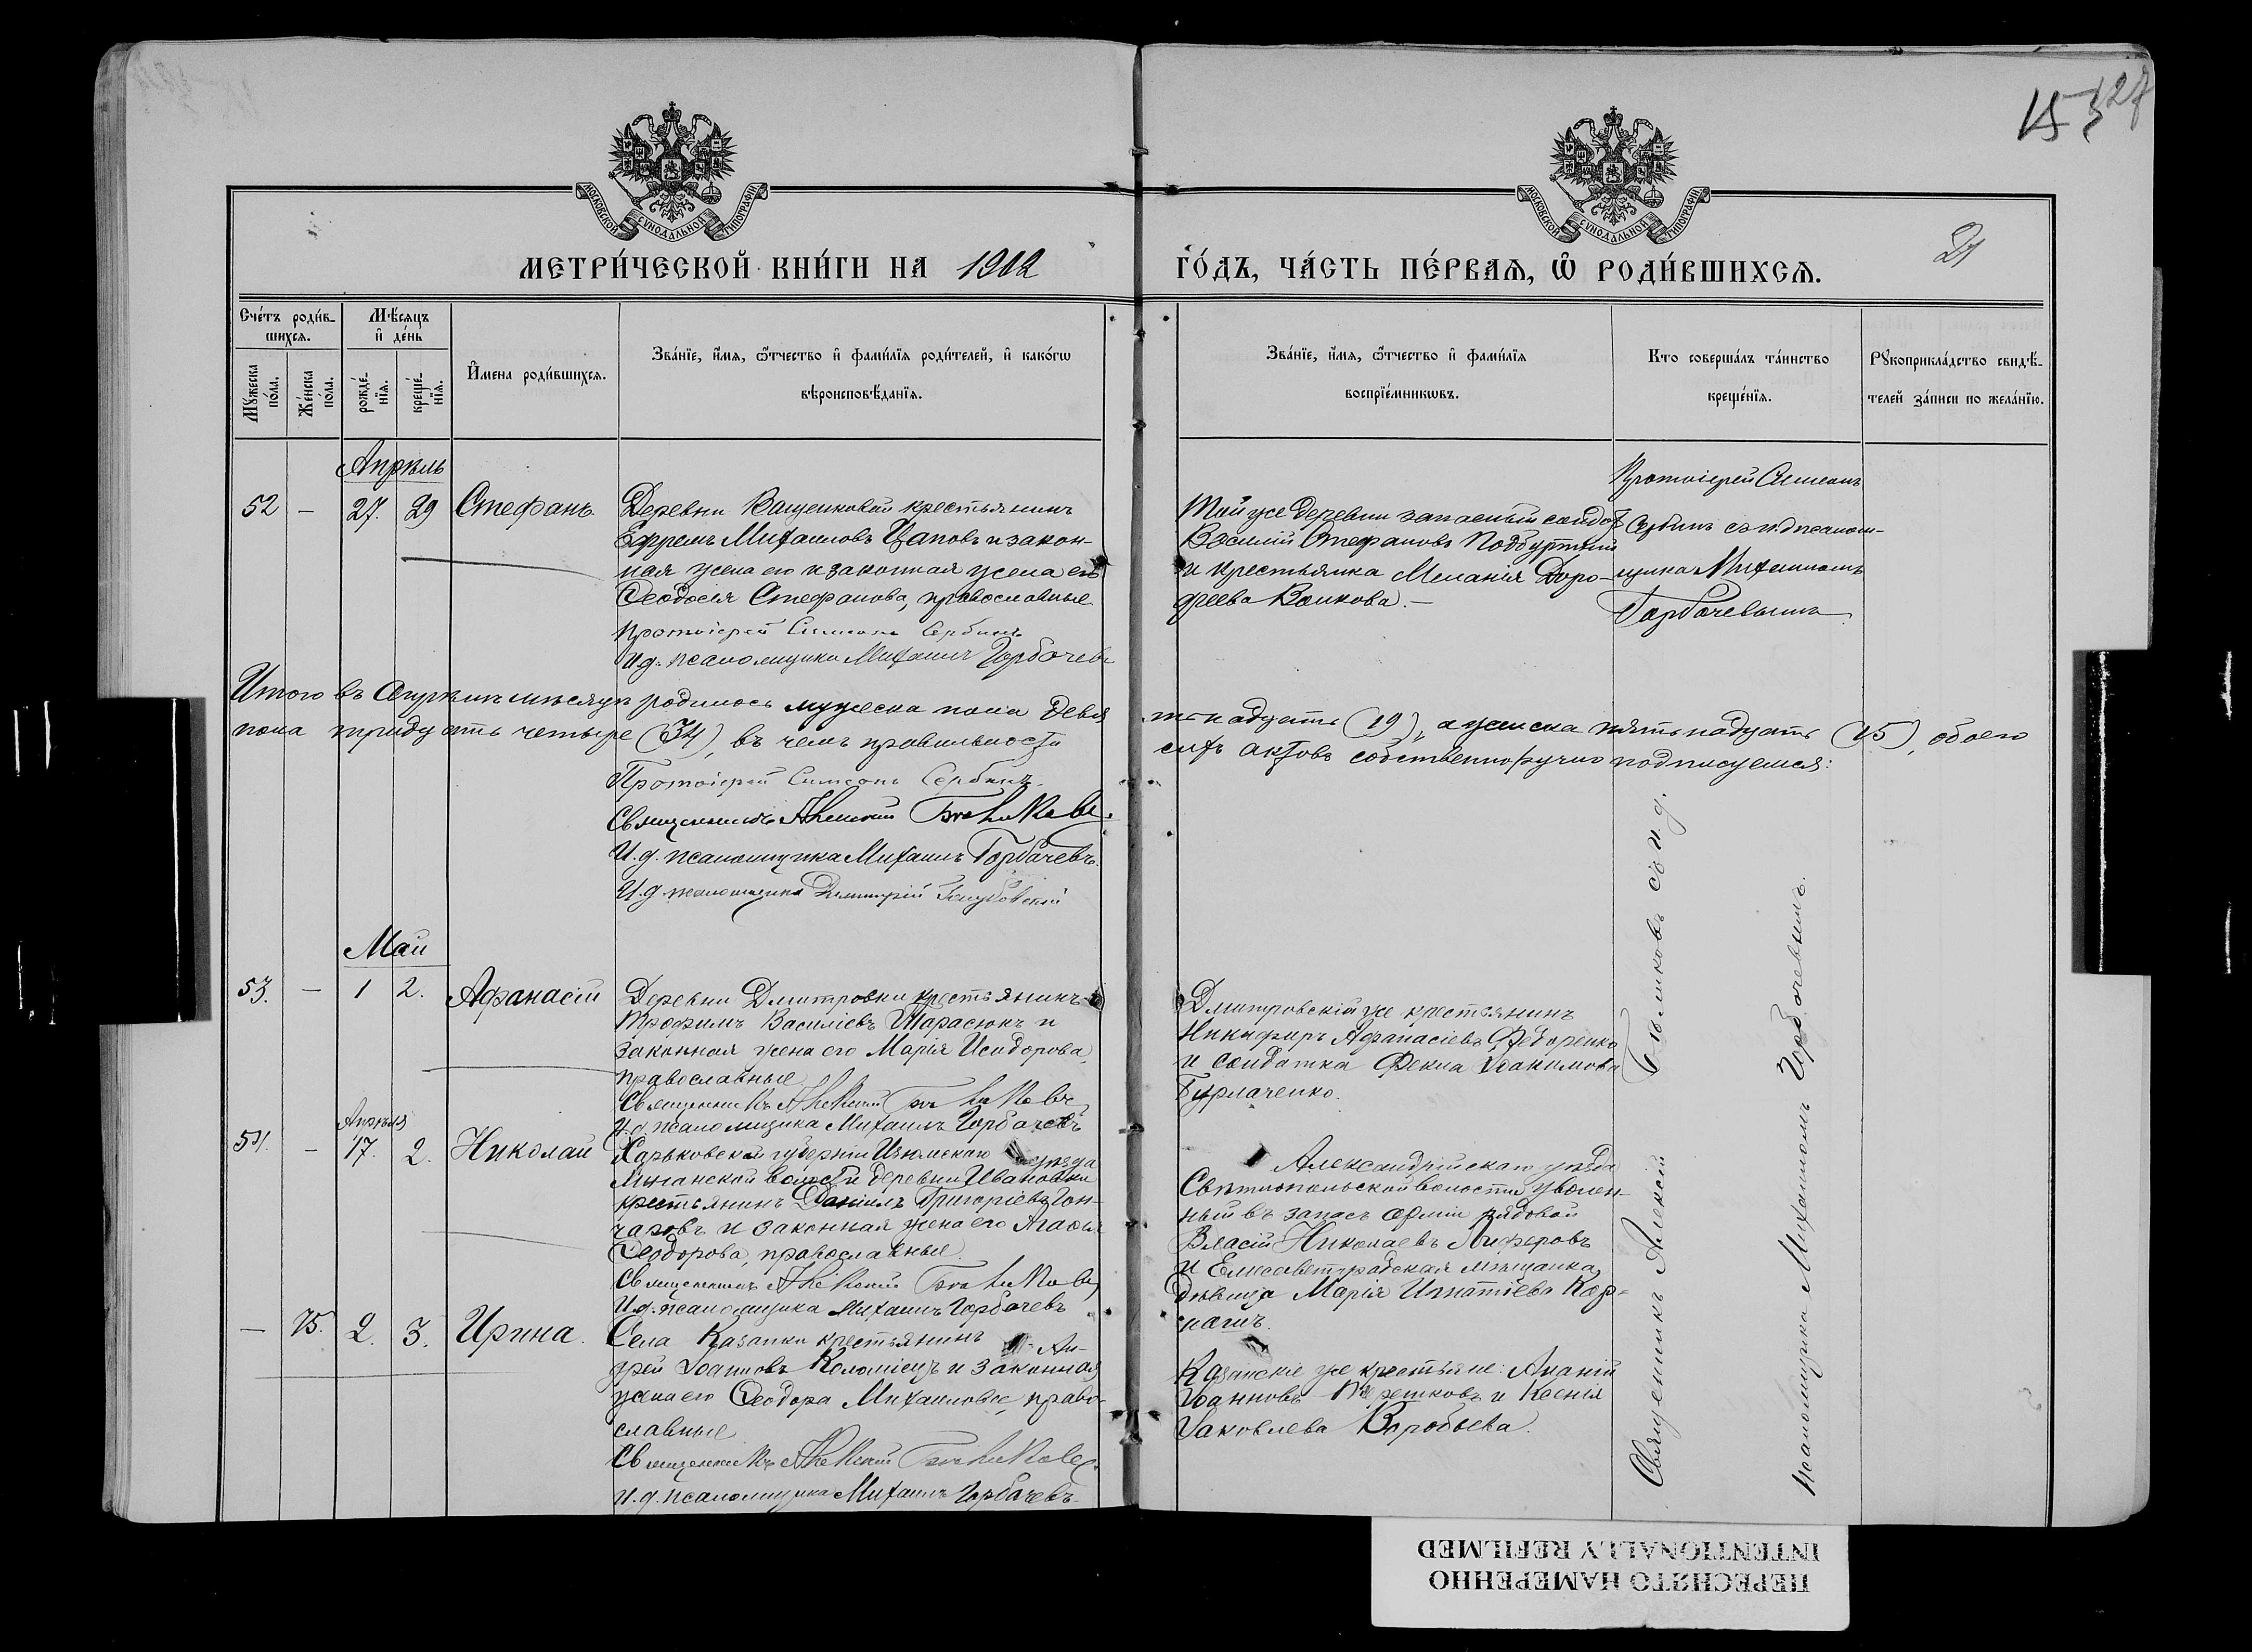 15 3
127
МОСКОВСКОЙ СѴНОДАЛЬНОЙ ТИПОГРАФІИ
МОСКОВСКОЙ СѴНОДАЛЬНОЙ ТИПОГРАФІИ
21
МЕТРИ́ЧЕСКОЙ КНИ́ГИ НА 1912
ГО́ДЪ, ЧА́СТЬ ПЕ́РВАѦ, Ѿ РОДИ́ВШИХСѦ.
Сче́тъ роди́в-
шихсѧ.
Мꙋжеска по́ла.
Же́нска по́ла.
Мѣ́сѧцъ
и҆ де́нь
рожде́-
нїѧ.
креще́-
нїѧ.
И҆́мена роди́вшихсѧ.
Зва́нїе, и҆́мѧ, ѻ҆́тчество и҆ фами́лїѧ роди́телей, и҆ како́гѡ
вѣроисповѣ́данїѧ.
Зва́нїе, и҆́мѧ, ѻ҆́тчество и҆ фами́лїѧ
воспрїе́мникѡвъ.
Кто соверша́лъ та́инство
креще́нїѧ.
Рꙋкоприкла́дство свидѣ́-
телей за́писи по жела́нїю.
Апрѣль
52 — 27. 29 Стефанъ
Деревни Ващенковой крестьянинъ
Ефремъ Михаиловъ Цаповъ и закон-
ная жена его и законная жена его
Ѳеодосія Стефанова, православные
Протоіерей Симеонъ Сербинъ
И.д. псаломщика Михаилъ Горбачевъ
Той же деревни запасный солдатъ
Василій Стефановъ
и крестьянка Меланія Доро-
феева Волкова.—
Протоіерей Симеонъ
Сербинъ съ и.д. псалом-
щика Михаиломъ
Горбачевымъ.
Итого въ Апрѣлѣ мѣсяцѣ родилось мужеска пола девят-
надцать (19), а женска пятьнадцать (15), обоего
пола тридцать четыре (34), въ чемъ правильности
сихъ актовъ собственноручно подписуемся:
Протоіерей Симеонъ Сербинъ.
Священникъ Алексій Бѣликовъ.
И.д. псаломщика Михаилъ Горбачевъ.
И.д. псаломщика Димитрій
Май
53. — 1 2. Афанасій
Деревни Дмитровки крестьянинъ
Трофимъ Василіевъ Тарасюкъ и
законная жена его Марія Исидорова,
православные
Священникъ Алексій Бѣликовъ
И.д. псаломщика Михаилъ Горбачевъ
Дмитровскій же крестьянинъ
Никифиръ Афанасіевъ Федоренко
и солдатка Фекла Іоакимова
Бурлаченко.
Апрѣля
54. — 17. 2. Николай
Харьковской губерніи Изюмскаго уѣзда
волости деревни Ивановки
крестьянинъ Даніилъ Григоріевъ Гон-
чаровъ и законная жена его Агафія
Ѳеодорова, православные.
Священникъ Алексій Бѣликовъ
И.д. псаломщика Михаилъ Горбачевъ
Александрійскаго уѣзда
Свѣтлопольской волости уволен-
ный въ запасъ арміи рядовой
Власій Николаевъ Лиферовъ
и Елисаветградская мѣщанка
дѣвица Марія Игнатіева Кар-
пашъ.
— 15. 2. 3. Ирина.
Села Казанки крестьянинъ Ан-
дрей Іоанновъ Коломіецъ и законная
жена его Ѳеодора Михаиловна, право-
славные
Священникъ Алексій Бѣликовъ.
И.д. псаломщика Михаилъ Горбачевъ
Казанскіе же крестьяне: Ананій
Іоанновъ и Ксенія
Іаковлева Воробьева.
Священникъ Алексій Бѣликовъ съ и.д.
псаломщика Михаиломъ Горбачевымъ.
ПЕРЕСНЯТО НАМЕРЕННО
INTENTIONALLY REFILMED